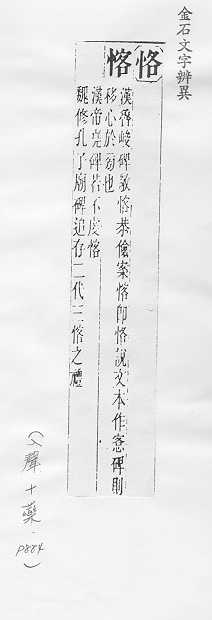 金石文字辨異
恪
愘
漢魯峻碑敦愘恭儉案愘即恪說文本作愙碑則
移心於旁也
漢帝堯碑若不虔愘
魏修孔子廟碑追存二代三愘之禮
(入聲十藥. P884)